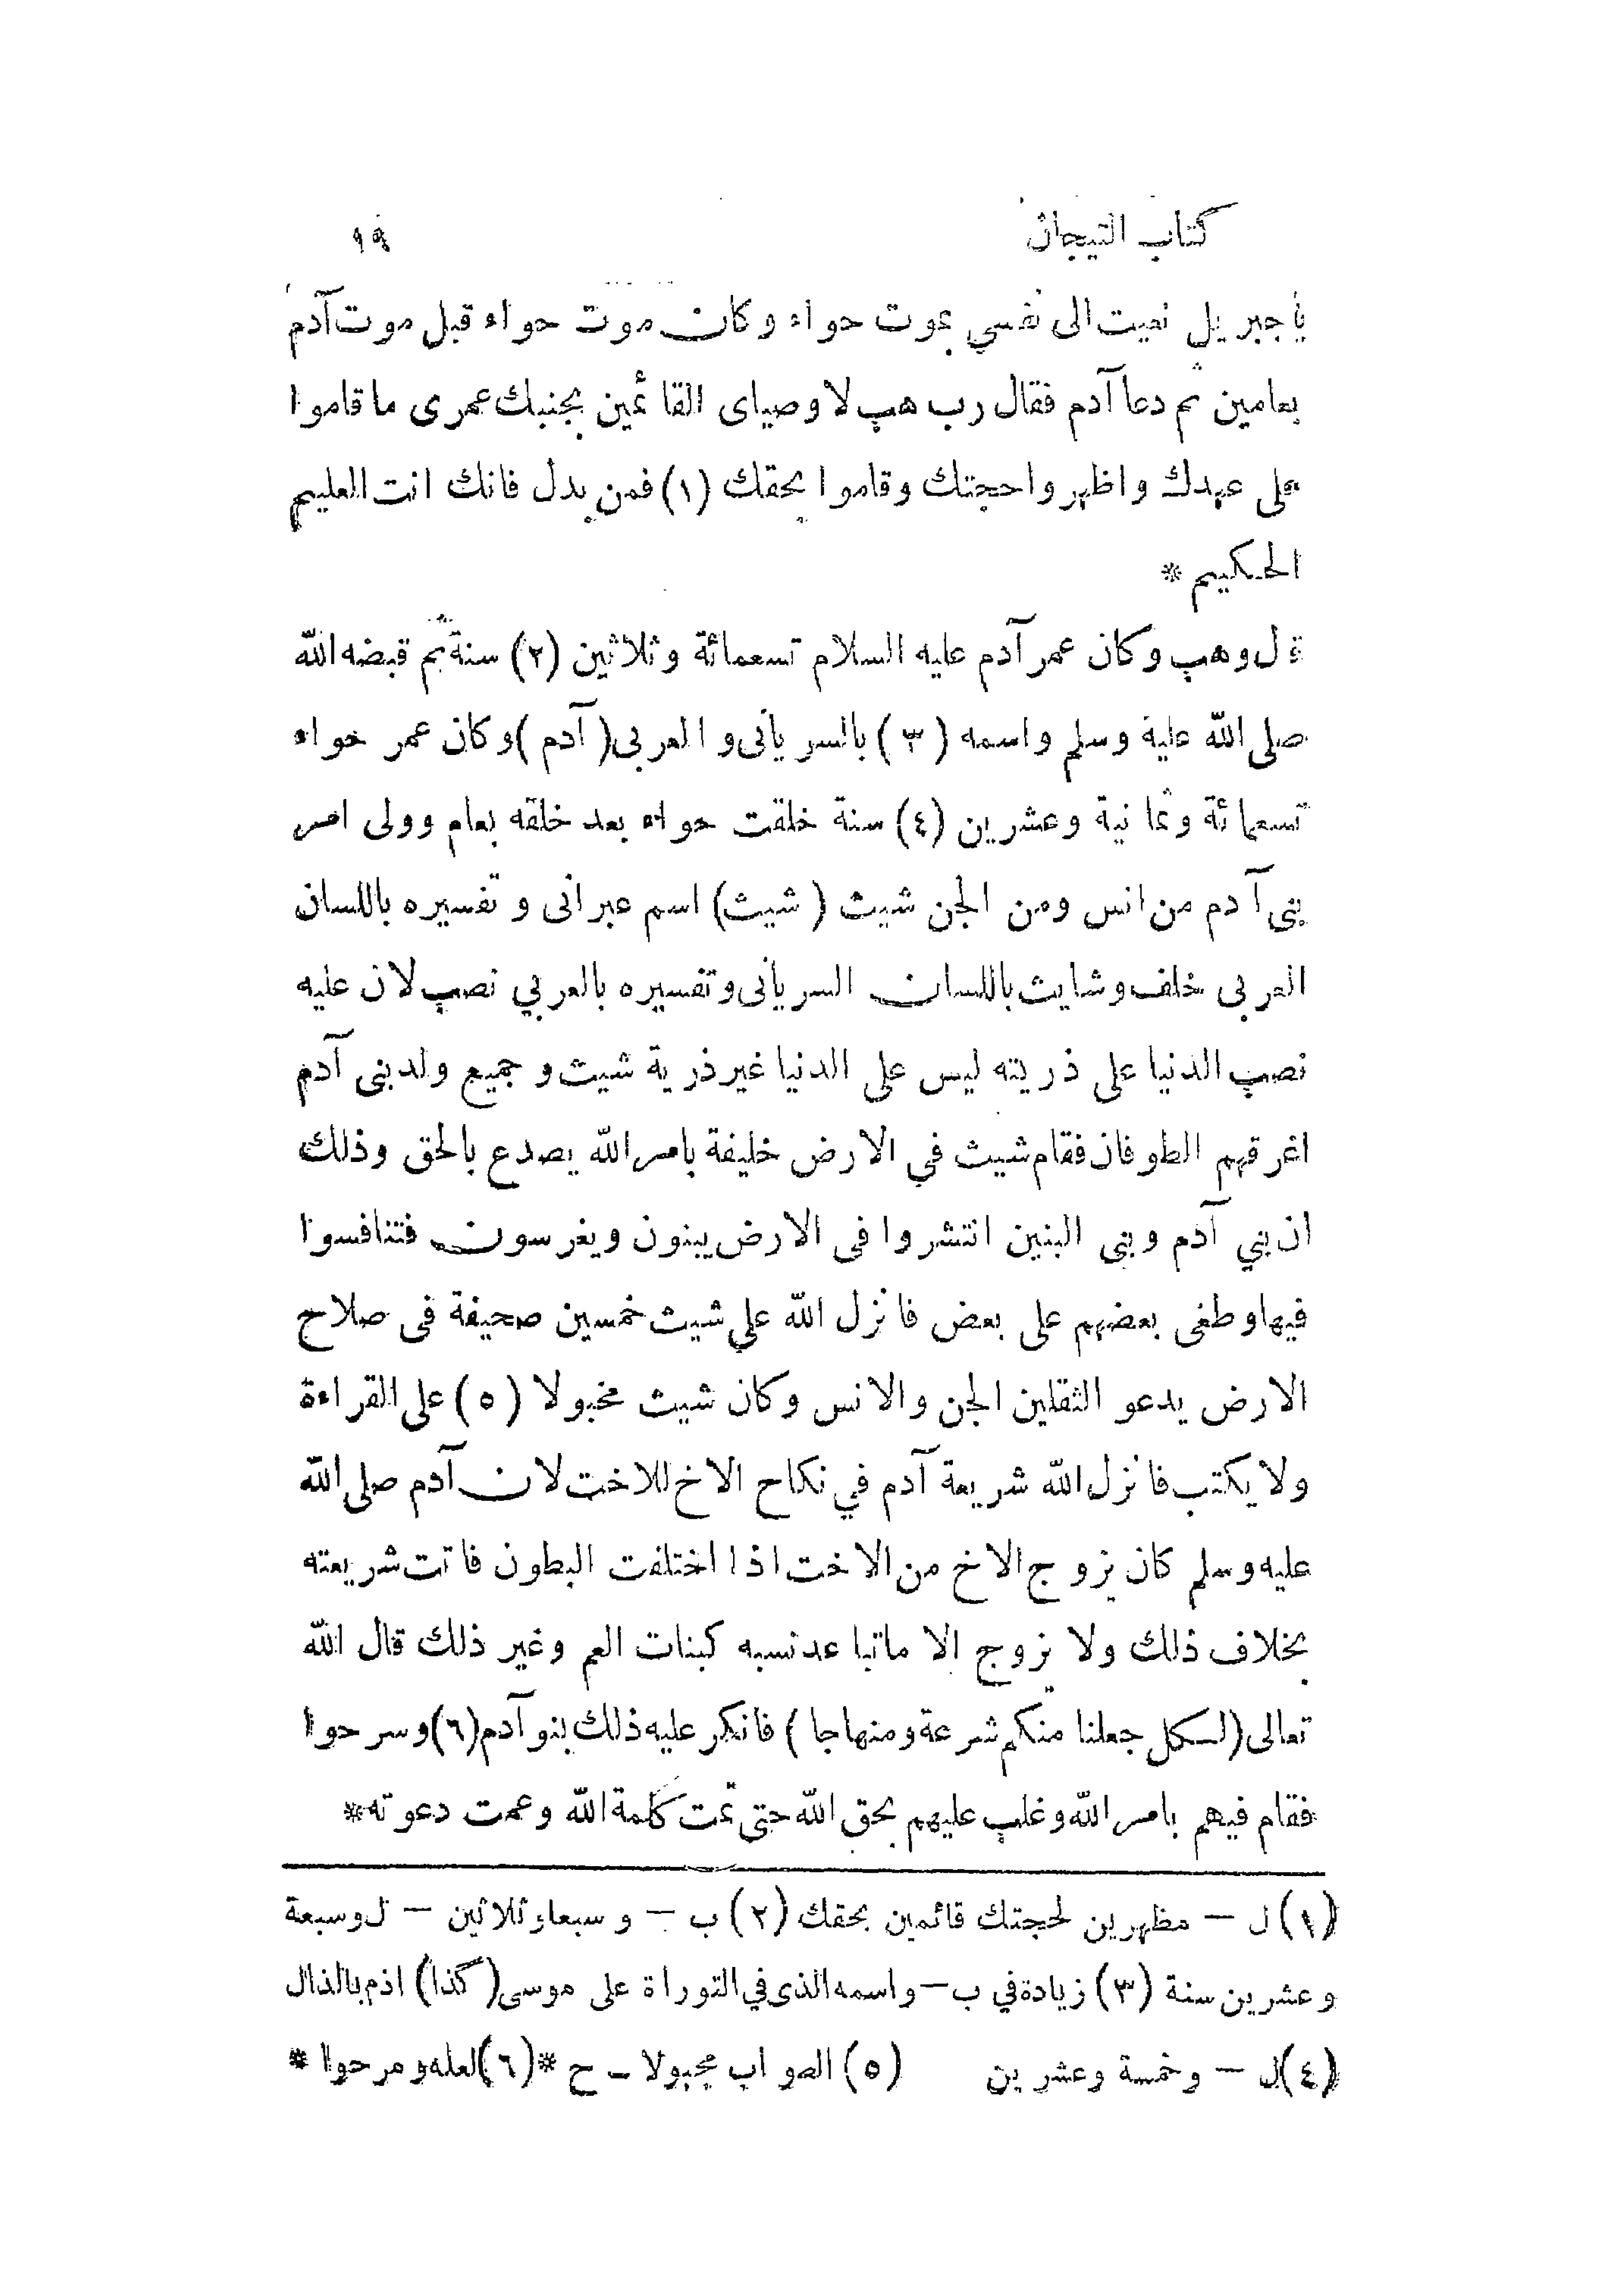 كتاب التيجان ١٩
يا جبريل نعيت الى نفسي بموت حواء وكان موت حواء قبل موت آدم
بعامين ثم دعا آدم فقال رب هب لاوصياى القائمين بجنبك عمرى ما قاموا
على عهدك واظهروا حجتك وقاموا بحقك (١) فمن بدل فانك انت العليم
الحكيم *
قال وهب وكان عمر آدم عليه السلام تسعمائة وثلاثين (٢) سنة ثم قبضه الله
صلى الله عليه وسلم واسمه (٣) بالسريانى والعربى (آدم) وكان عمر حواء
تسعمائة وثمانية وعشرين (٤) سنة خلقت حواء بعد خلقه بعام وولى امر
بنى آدم من انس ومن الجن شيث (شيث) اسم عبرانى وتفسيره باللسان
العربى خلف وشايث باللسان السريانى وتفسيره بالعربي نصب لان عليه
نصب الدنيا على ذريته ليس على الدنيا غير ذرية شيث وجميع ولد بنى آدم
اغرقهم الطوفان فقام شيث في الارض خليفة بامر الله يصدع بالحق وذلك
ان بني آدم وبنى البنين انتشروا فى الارض يبنون ويغرسون فتنافسوا
فيها وطغى بعضهم على بعض فانزل الله علي شيث خمسين صحيفة فى صلاح
الارض يدعو الثقلين الجن والانس وكان شيث مخبولا (٥) على القراءة
ولا يكتب فانزل الله شريعة آدم في نكاح الاخ للاخت لان آدم صلى الله
عليه وسلم كان يزوج الاخ من الاخت اذا اختلفت البطون فاتت شريعته
بخلاف ذلك ولا يزوج الا ما تباعد نسبه كبنات العم وغير ذلك قال الله
تعالى (لكل جعلنا منكم شرعة ومنهاجا) فانكر عليه ذلك بنو آدم (٦) وسرحوا
فقام فيهم بامر الله وغلب عليهم بحق الله حتى تمت كلمة الله وعمت دعوته *
(١) ل – مظهرين لحجتك قائمين بحقك (٢) ب – وسبعا وثلاثين – ل وسبعة
وعشرين سنة (٣) زيادة في ب – واسمه الذى في التوراة على موسى (كذا) اذم بالذال
(٤) ل – وخمسة وعشرين (٥) الصواب مجبولا – ح * (٦) لعله ومرحوا *